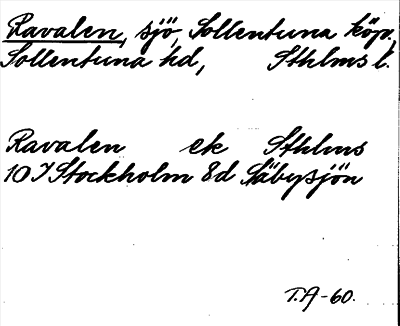 Ravalen, sjö, Sollentuna köp.,
Sollentuna hd, Sthlms l.
Ravalen ek Sthlms
10 I Stockholm 8d Säbysjön
T.A-60.